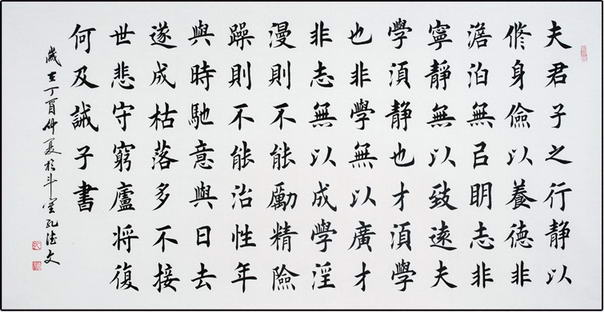 夫君子之行静以
脩身儉以養德非
澹泊無㠯眀志非
寧静無以致遠夫
學須静也才須學
也非學無以廣才
非志無以成學淫
漫則不能勵精險
躁則不能治性年
與時馳意與日去
遂成枯落多不接
世悲守窮廬將復
何及誡子書
歲在丁酉仲夏於斗室孔德文